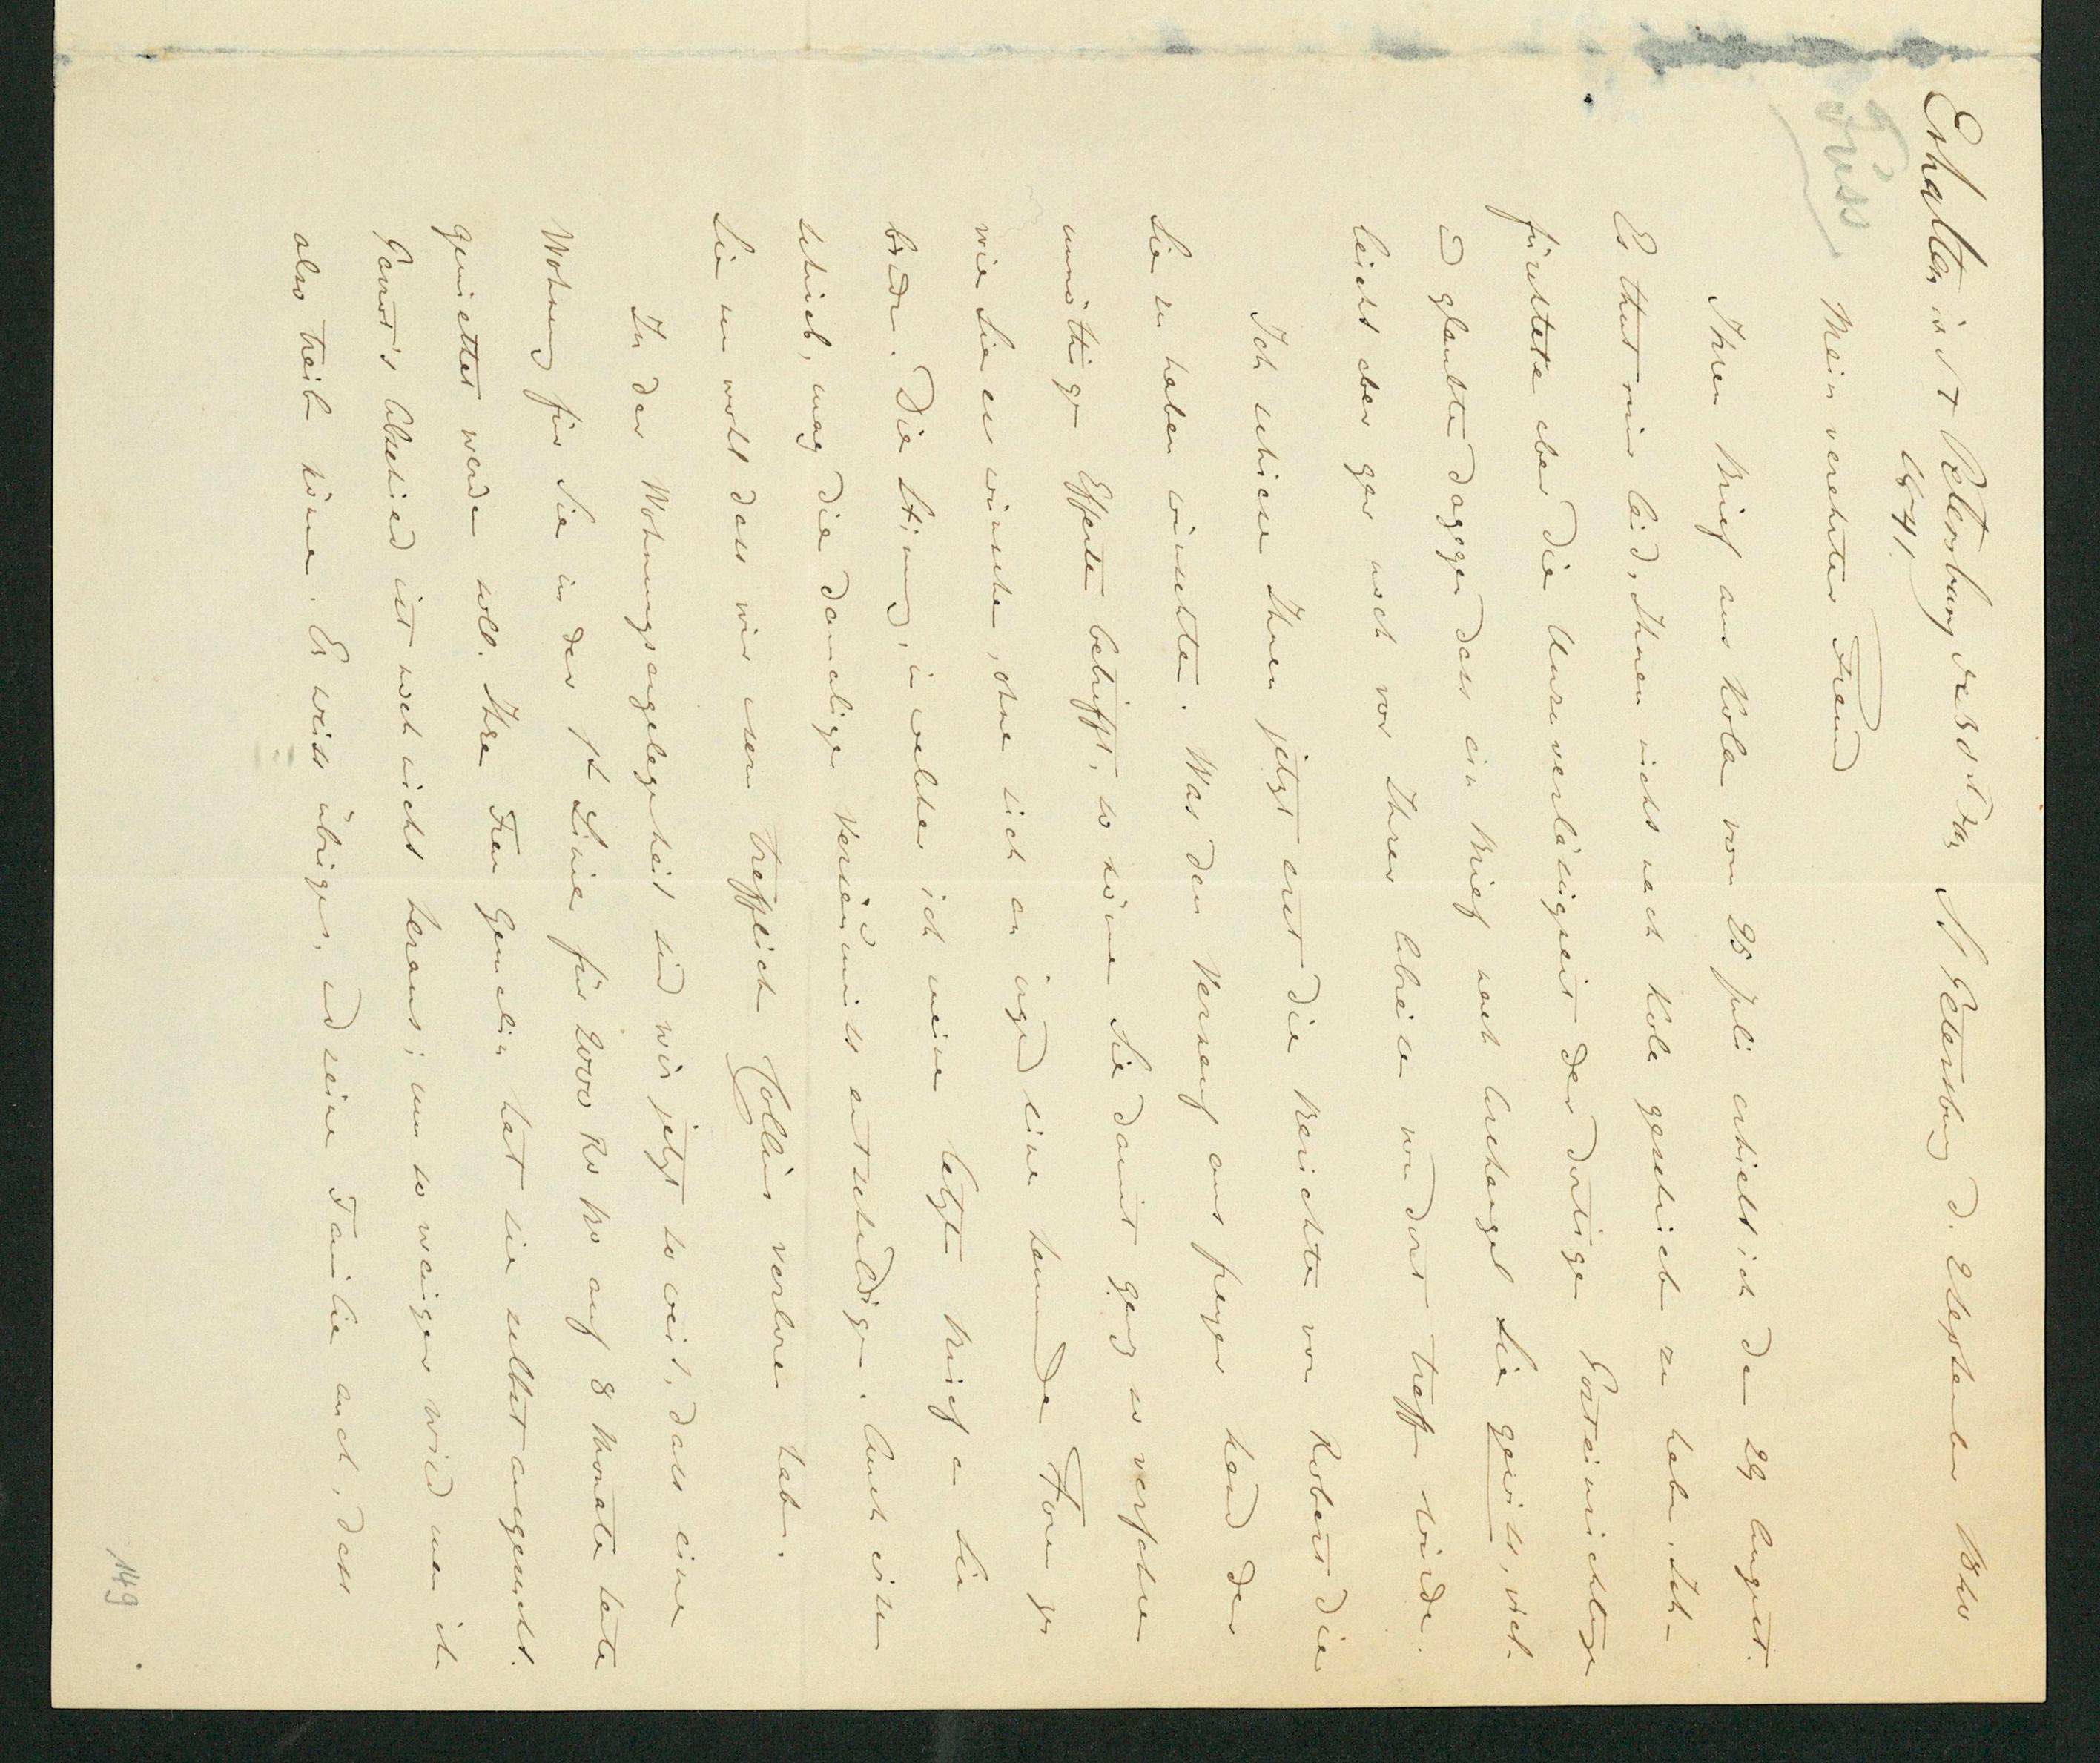 Erhalten in St Petersburg
1841.
Füss
St Petersburg d. 2 September 1840
Mein verehrter Freund
Ihren Brief aus Kola vom 28 Juli erhielt ich den 29 August.
Es thut mir leid, Ihnen nichts nach Kola geschrieben zu haben. Ich
fürchtete aber die Unzuverlässigkeit der dortigen Posteinrichtungen
und glaubte dagegen dass ein Brief nach Archangel Sie gewiss, viel-
leicht aber gar noch vor Ihrer Abreise von dort treffen würde.
Ich schicke Ihnen jetzt erst die Berichte von Robert die
Sie zu haben wünschten. Was den Verkauf aus freyer Hand der
unnöthigen Effecten betrifft, so können Sie damit ganz so verfahren
wie Sie es wünschen, ohne sich an irgend eine hemmende Form zu
binden. Die Stimmung, in welcher ich meinen letzten Brief an Sie
schrieb, mag die damalige Versäumniss entschuldigen. Auch wissen
Sie nun wohl dass wir unsern trefflichen Collins verloren haben.
In der Wohnungsangelegenheit sind wir jetzt so weit, dass eine
Wohnung für Sie in der 7t Linie für 2000 Ro Bo auf 8 Monate heute
gemiethet werden soll. Ihre Frau Gemalin hat sie selbst ausgesucht.
Abschied ist noch nicht heraus; um so weniger wird man ihn
also treiben können. Er weiss übrigens, und seine Familie auch, dass
149